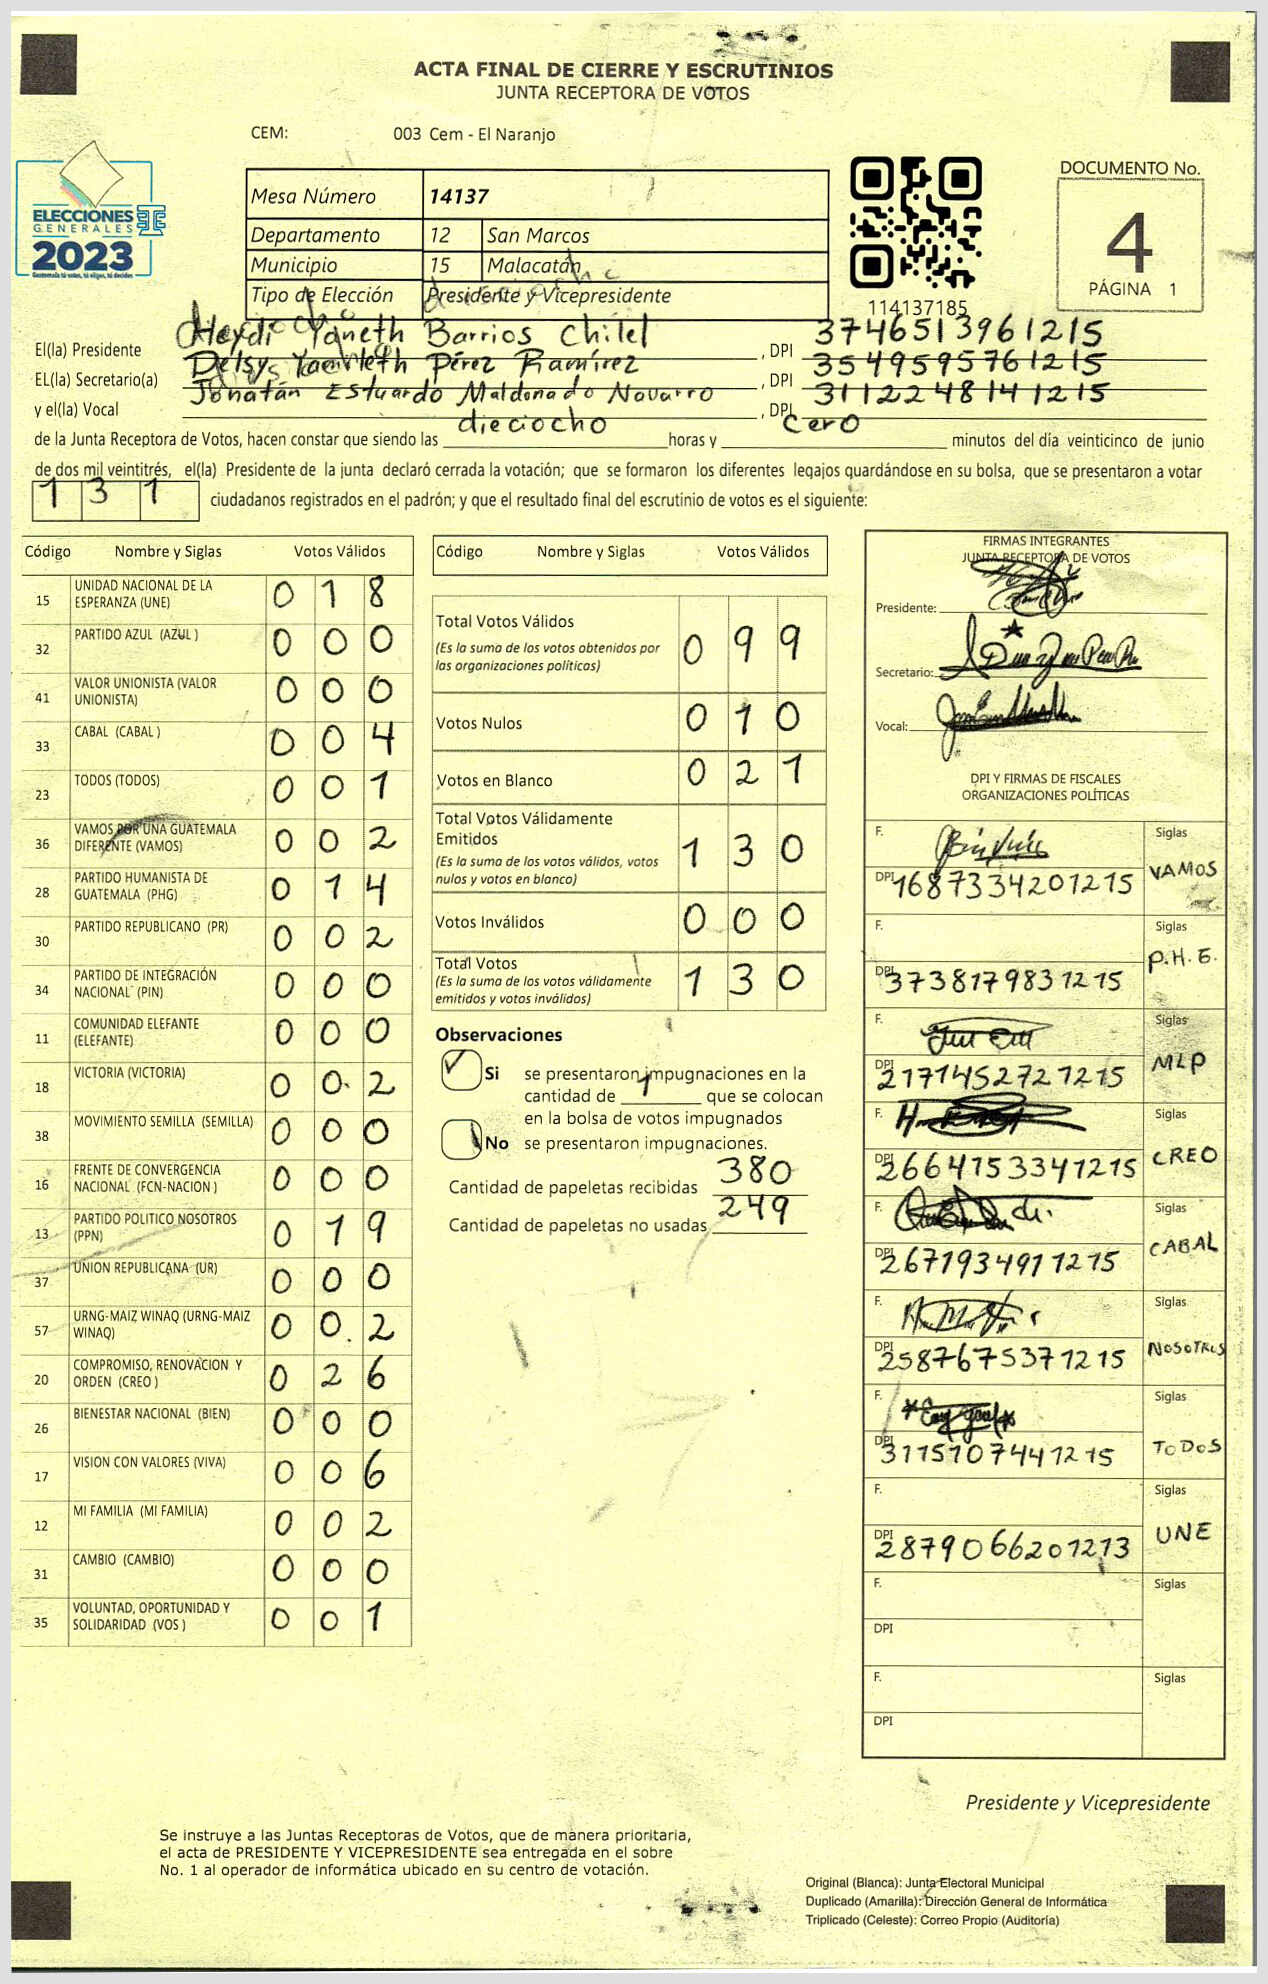 ACTA FINAL DE CIERRE Y ESCRUTINIOS
JUNTA RECEPTORA DE VOTOS
CEM: 003 Cem - El Naranjo
ELECCIONES
GENERALES
2023
Guatemala tú votas, tú eliges, tú decides
Mesa Número 14137
Departamento 12 San Marcos
Municipio 15 Malacatán
Tipo de Elección Presidente y Vicepresidente
114137185
DOCUMENTO No.
4
PÁGINA 1
El(la) Presidente Heydi Yaneth Barrios Chilel , DPI 3746513961215
EL(la) Secretario(a) Delsy Yamileth Pérez Ramírez , DPI 3549595761215
y el(la) Vocal Jonatán Estuardo Maldonado Navarro , DPI 3112248141215
de la Junta Receptora de Votos, hacen constar que siendo las dieciocho horas y cero minutos del día veinticinco de junio
de dos mil veintitrés, el(la) Presidente de la junta declaró cerrada la votación; que se formaron los diferentes legajos guardándose en su bolsa, que se presentaron a votar
131 ciudadanos registrados en el padrón; y que el resultado final del escrutinio de votos es el siguiente:
Código Nombre y Siglas Votos Válidos
15 UNIDAD NACIONAL DE LA ESPERANZA (UNE) 0 1 8
32 PARTIDO AZUL (AZUL ) 0 0 0
41 VALOR UNIONISTA (VALOR UNIONISTA) 0 0 0
33 CABAL (CABAL ) 0 0 4
23 TODOS (TODOS) 0 0 1
36 VAMOS POR UNA GUATEMALA DIFERENTE (VAMOS) 0 0 2
28 PARTIDO HUMANISTA DE GUATEMALA (PHG) 0 1 4
30 PARTIDO REPUBLICANO (PR) 0 0 2
34 PARTIDO DE INTEGRACIÓN NACIONAL (PIN) 0 0 0
11 COMUNIDAD ELEFANTE (ELEFANTE) 0 0 0
18 VICTORIA (VICTORIA) 0 0 2
38 MOVIMIENTO SEMILLA (SEMILLA) 0 0 0
16 FRENTE DE CONVERGENCIA NACIONAL (FCN-NACION ) 0 0 0
13 PARTIDO POLITICO NOSOTROS (PPN) 0 1 9
37 UNION REPUBLICANA (UR) 0 0 0
57 URNG-MAIZ WINAQ (URNG-MAIZ WINAQ) 0 0 2
20 COMPROMISO, RENOVACION Y ORDEN (CREO ) 0 2 6
26 BIENESTAR NACIONAL (BIEN) 0 0 0
17 VISION CON VALORES (VIVA) 0 0 6
12 MI FAMILIA (MI FAMILIA) 0 0 2
31 CAMBIO (CAMBIO) 0 0 0
35 VOLUNTAD, OPORTUNIDAD Y SOLIDARIDAD (VOS ) 0 0 1
Código Nombre y Siglas Votos Válidos
Total Votos Válidos 0 9 9
(Es la suma de los votos obtenidos por
las organizaciones políticas)
Votos Nulos 0 1 0
Votos en Blanco 0 2 1
Total Votos Válidamente
Emitidos 1 3 0
(Es la suma de los votos válidos, votos
nulos y votos en blanco)
Votos Inválidos 0 0 0
Total Votos 1 3 0
(Es la suma de los votos válidamente
emitidos y votos inválidos)
Observaciones
Si se presentaron impugnaciones en la
cantidad de 1 que se colocan
en la bolsa de votos impugnados
No se presentaron impugnaciones.
Cantidad de papeletas recibidas 380
Cantidad de papeletas no usadas 249
FIRMAS INTEGRANTES
JUNTA RECEPTORA DE VOTOS
Presidente:
Secretario:
Vocal:
DPI Y FIRMAS DE FISCALES
ORGANIZACIONES POLÍTICAS
F. Siglas
DPI 1687334201215 VAMOS
F. Siglas
DPI 3738179831215 P.H.G.
F. Siglas
DPI 2171452721215 MLP
F. Siglas
DPI 2664153341215 CREO
F. Siglas
DPI 2671934911215 CABAL
F. Siglas
DPI 2587675371215 NOSOTROS
F. Siglas
DPI 3115107441215 TODOS
F. Siglas
DPI 2879066201213 UNE
F. Siglas
DPI
F. Siglas
DPI
Presidente y Vicepresidente
Se instruye a las Juntas Receptoras de Votos, que de manera prioritaria,
el acta de PRESIDENTE Y VICEPRESIDENTE sea entregada en el sobre
No. 1 al operador de informática ubicado en su centro de votación.
Original (Blanca): Junta Electoral Municipal
Duplicado (Amarilla): Dirección General de Informática
Triplicado (Celeste): Correo Propio (Auditoría)